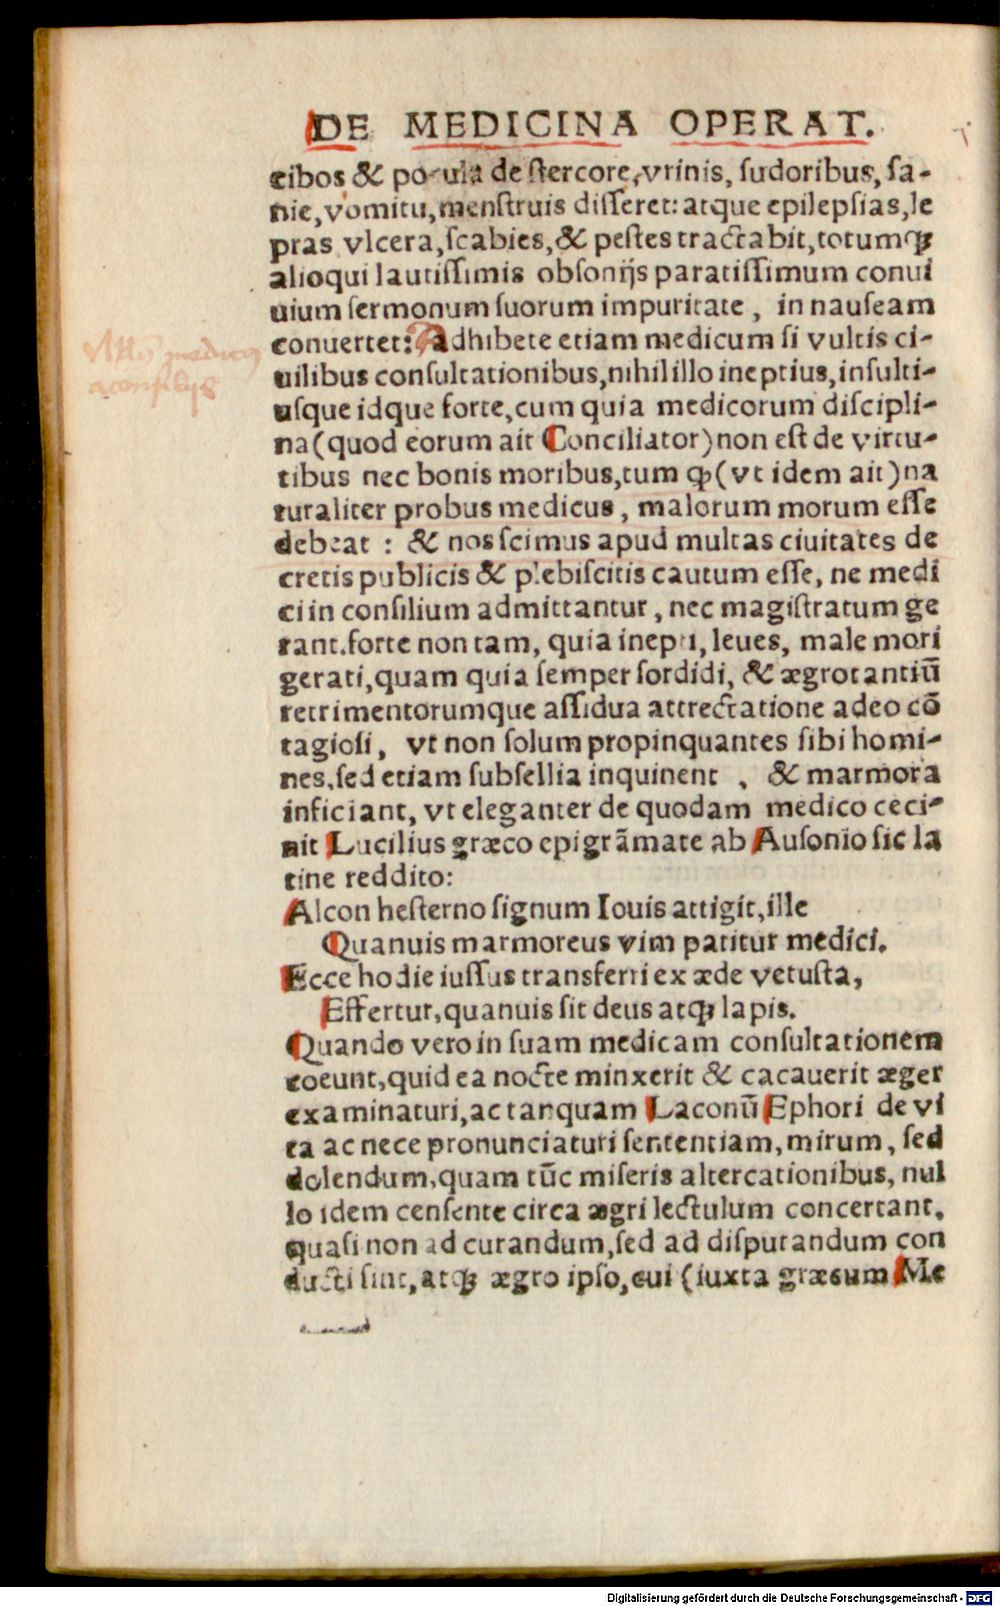 DE MEDICINA OPERAT.
cibos & pocula de ſtercore, vrinis, ſudoribus, ſa-
nie, vomitu, menſtruis diſſeret: atque epilepſias, le
pras vlcera, ſcabies, & peſtes tractabit, totumqꝫ
alioqui lautiſſimis obſonijs paratiſſimum conui
uium ſermonum ſuorum impuritate, in nauſeam
conuertet: Adhibete etiam medicum ſi vultis ci-
uilibus conſultationibus, nihil illo ineptius, inſulti-
uſque idque forte, cum quia medicorum diſcipli-
na (quod eorum ait Conciliator) non eſt de virtu-
tibus nec bonis moribus, tum ꝙ (vt idem ait) na
turaliter probus medicus, malorum morum eſſe
debeat : & nos ſcimus apud multas ciuitates de
cretis publicis & plebiſcitis cautum eſſe, ne medi
ci in conſilium admittantur, nec magiſtratum ge
rant. forte non tam, quia inepti, leues, male mori
gerati, quam quia ſemper ſordidi, & ægrotantiū
retrimentorumque aſſidua attrectatione adeo cō
tagioſi, vt non ſolum propinquantes ſibi homi-
nes, ſed etiam ſubſellia inquinent , & marmora
inficiant, vt eleganter de quodam medico ceci-
nit Lucilius græco epigrāmate ab Auſonio ſic la
tine reddito:
Alcon heſterno ſignum Iouis attigit, ille
Quanuis marmoreus vim patitur medici.
Ecce hodie iuſſus transferri ex æde vetuſta,
Effertur, quanuis ſit deus atqꝫ lapis.
Quando vero in ſuam medicam conſultationem
coeunt, quid ea nocte minxerit & cacauerit æger
examinaturi, ac tanquam Laconū Ephori de vi
ta ac nece pronunciaturi ſententiam, mirum, ſed
dolendum, quam tūc miſeris altercationibus, nul
lo idem cenſente circa ægri lectulum concertant.
quaſi non ad curandum, ſed ad diſputandum con
ducti ſint, atqꝫ ægro ipſo, cui (iuxta græcum Me
medicus
a consilijs
Digitalisierung gefördert durch die Deutsche Forschungsgemeinschaft - DFG